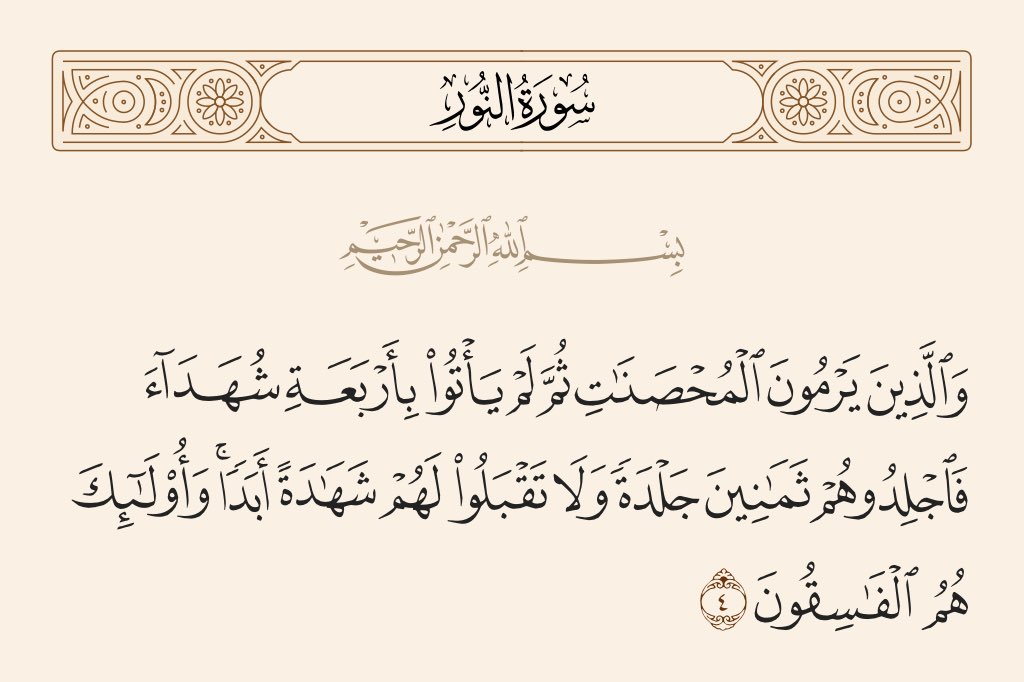 سُورَةُ النُّورِ
بِسْمِ ٱللَّهِ ٱلرَّحْمَٰنِ ٱلرَّحِيمِ
وَٱلَّذِينَ يَرْمُونَ ٱلْمُحْصَنَٰتِ ثُمَّ لَمْ يَأْتُوا۟ بِأَرْبَعَةِ شُهَدَآءَ
فَٱجْلِدُوهُمْ ثَمَٰنِينَ جَلْدَةً وَلَا تَقْبَلُوا۟ لَهُمْ شَهَٰدَةً أَبَدًا ۚ وَأُو۟لَٰٓئِكَ
هُمُ ٱلْفَٰسِقُونَ ٤